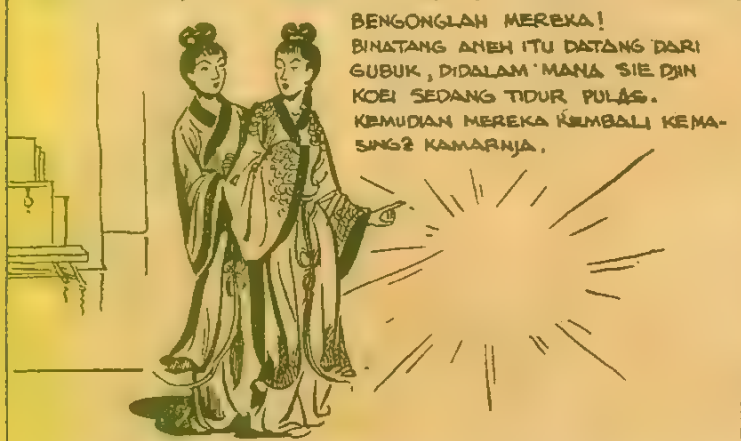 BENGONGLAH MEREKA!
BINATANG ANEH ITU DATANG DARI
GUBUK, DIDALAM MANA SIE DJIN
KOEI SEDANG TIDUR PULAS.
KEMUDIAN MEREKA KEMBALI KEMA-
SING2 KAMARNJA.